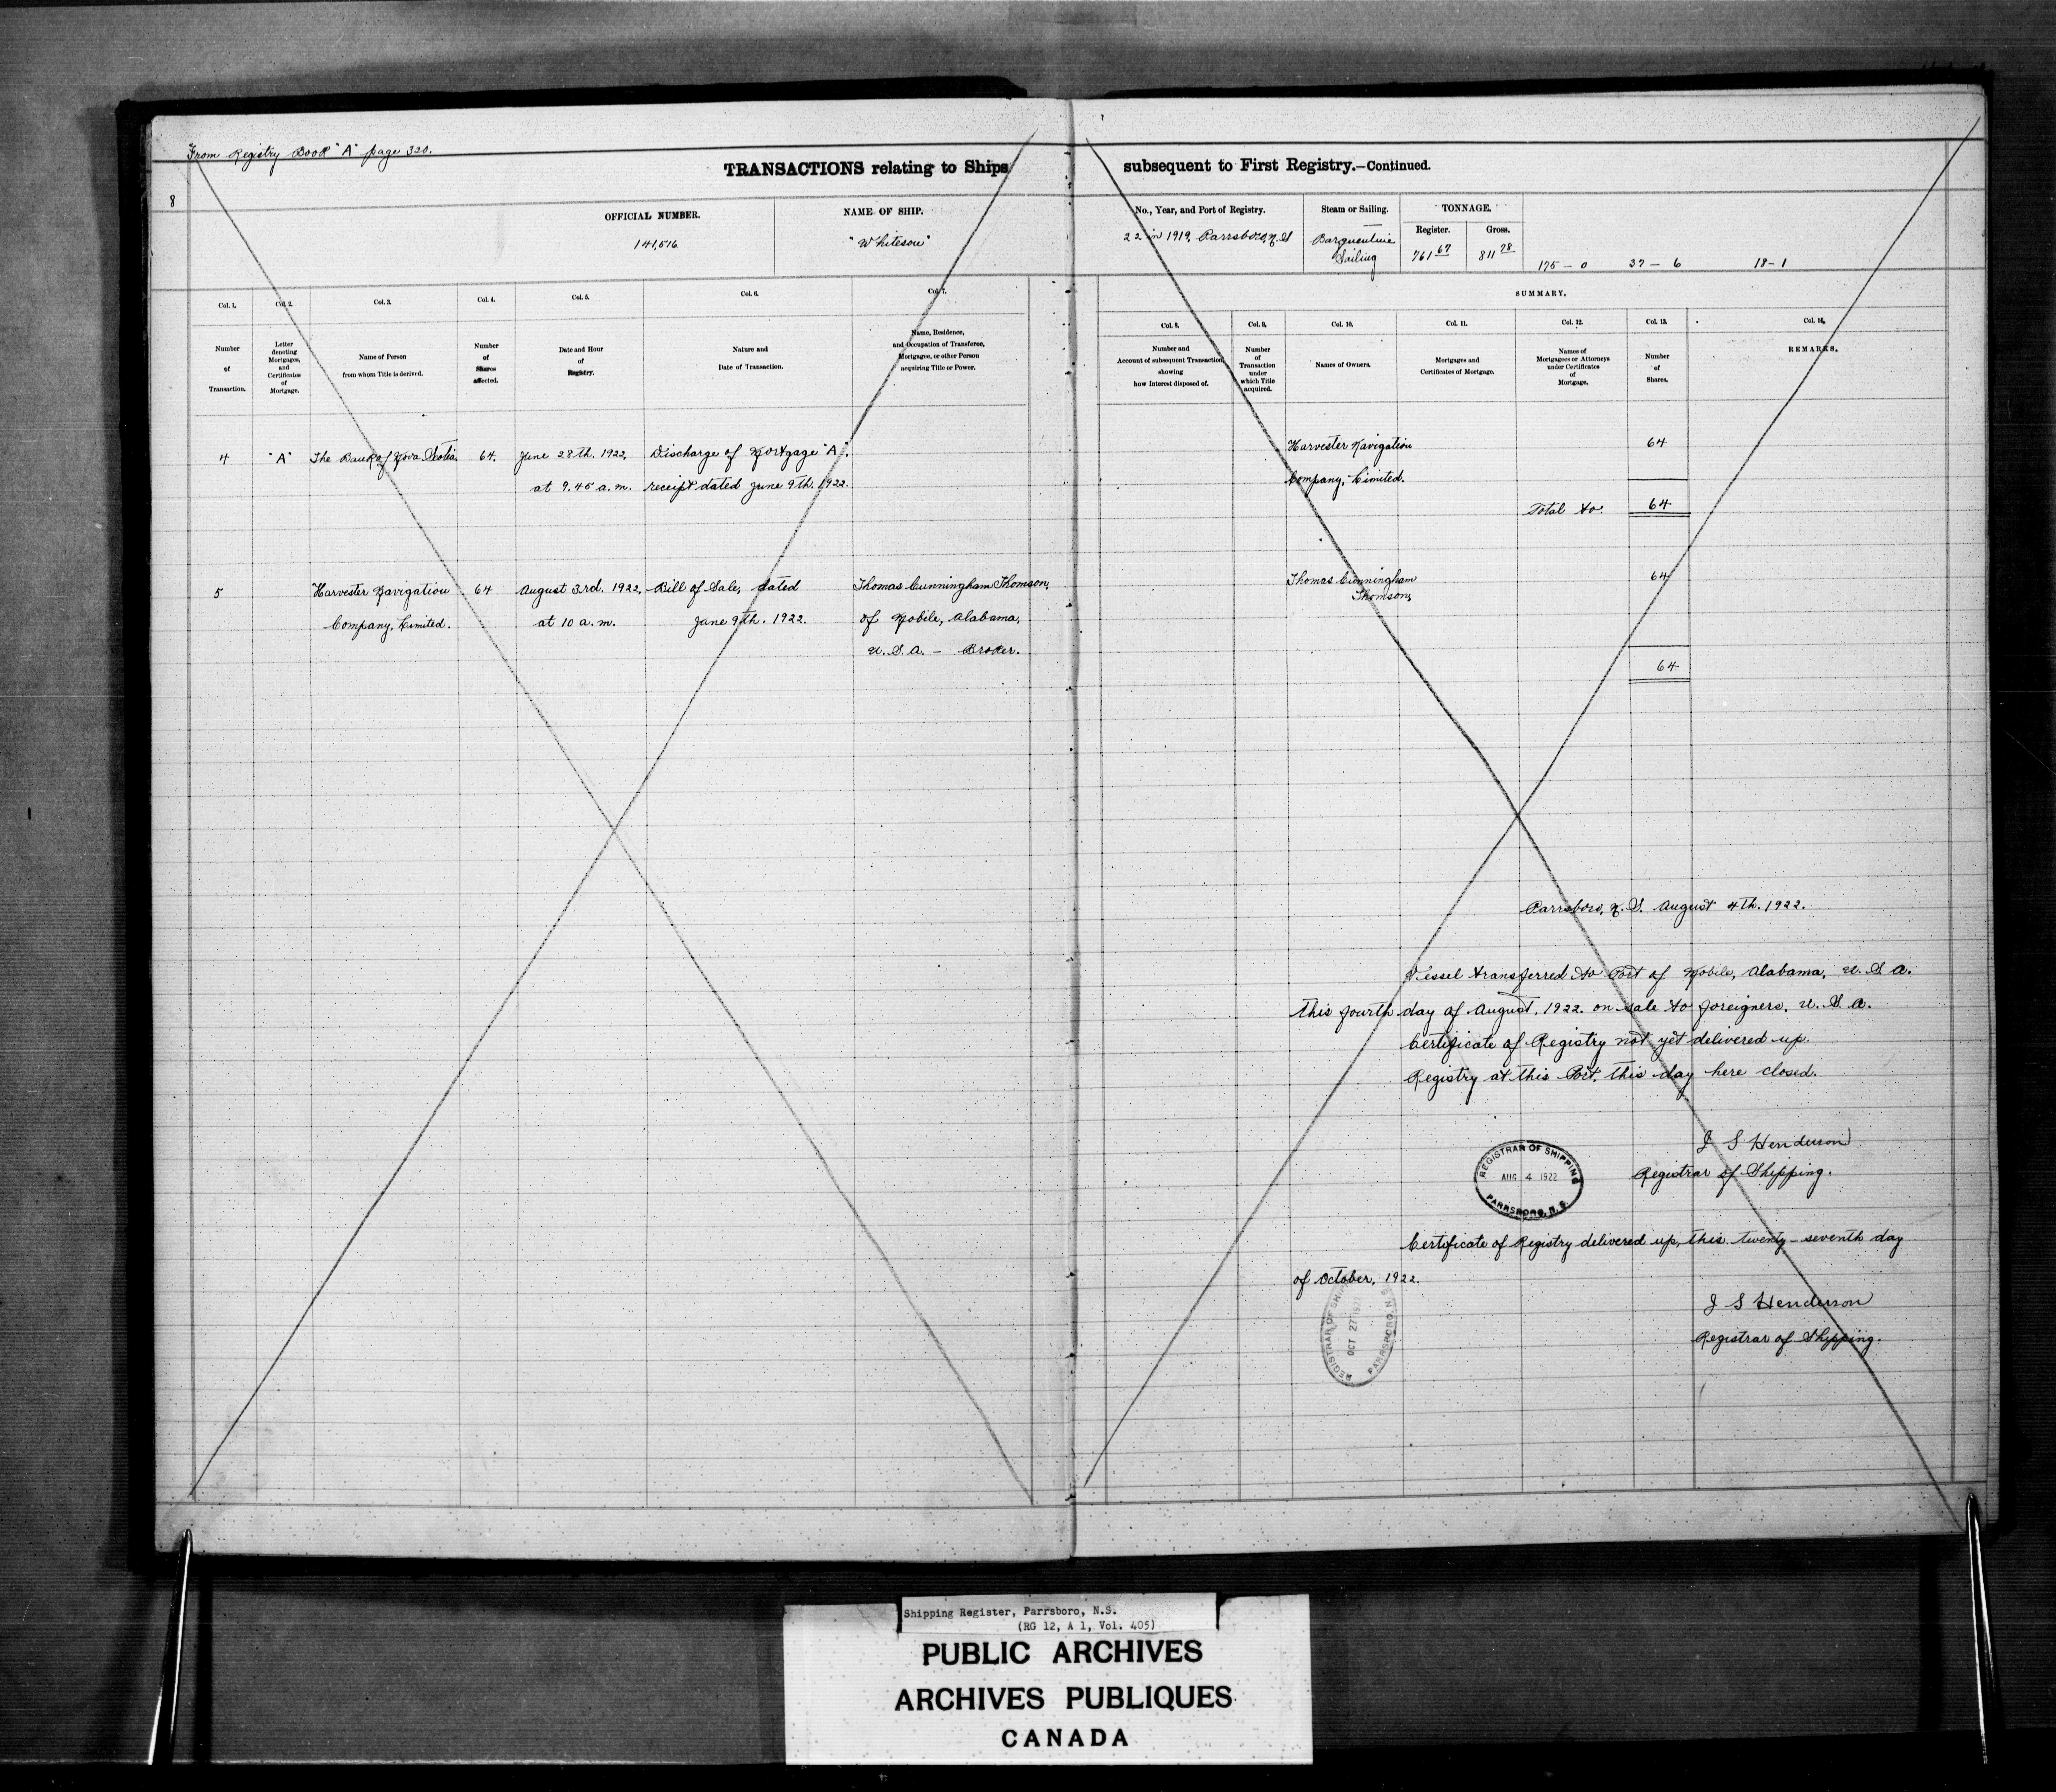 From Registry Book "A" page 320.
TRANSACTIONS relating to Ships subsequent to First Registry.—Continued.
8
OFFICIAL NUMBER.
141,516
NAME OF SHIP.
"Whiteson"
No., Year, and Port of Registry.
22 in 1919, Parrsboro, N.S
Steam or Sailing.
Barquentine
Sailing
TONNAGE.
Register.
761 67
Gross.
811 28
175 - 0 37 - 6 18 - 1
Col. 1.
Number
of
Transaction.
Col. 2.
Letter
denoting
Mortgages,
and
Certificates
of
Mortgage.
Col. 3.
Name of Person
from whom Title is derived.
Col. 4.
Number
of
Shares
affected.
Col. 5.
Date and Hour
of
Registry.
Col. 6.
Nature and
Date of Transaction.
Col. 7.
Name, Residence,
and Occupation of Transferee,
Mortgagee, or other Person
acquiring Title or Power.
SUMMARY.
Col. 8.
Number and
Account of subsequent Transaction,
showing
how Interest disposed of.
Col. 9.
Number
of
Transaction
under
which Title
acquired.
Col. 10.
Names of Owners.
Col. 11.
Mortgages and
Certificates of Mortgage.
Col. 12.
Names of
Mortgagees or Attorneys
under Certificates
of
Mortgage.
Col. 13.
Number
of
Shares.
Col. 14.
REMARKS.
4 "A" The Bank of Nova Scotia. 64. June 28th. 1922, Discharge of Mortgage "A",
at 9.45 a.m. receipt dated June 9th. 1922.
Harvester Navigation 64
Company, Limited.
Total to. 64
5 Harvester Navigation 64 August 3rd. 1922, Bill of Sale, dated Thomas Cunningham Thomson,
Company, Limited. at 10 a.m. June 9th. 1922. of Mobile, Alabama,
U.S.A. - Broker.
Thomas Cunningham 64
Thomson,
64
Parrsboro, N.S. August 4th. 1922.
Vessel transferred to Port of Mobile, Alabama, U.S.A.
this fourth day of August, 1922. on sale to foreigners, U.S.A.
Certificate of Registry not yet delivered up.
Registry at this Port, this day here closed.
J S Henderson
Registrar of Shipping.
REGISTRAR OF SHIPPING
AUG 4 1922
PARRSBORO, N.S.
Certificate of Registry delivered up, this twenty-seventh day
of October, 1922.
REGISTRAR OF SHIPPING
OCT 27 1922
PARRSBORO, N.S.
J S Henderson
Registrar of Shipping.
Shipping Register, Parrsboro, N.S.
(RG 12, A 1, Vol. 405)
PUBLIC ARCHIVES
ARCHIVES PUBLIQUES
CANADA